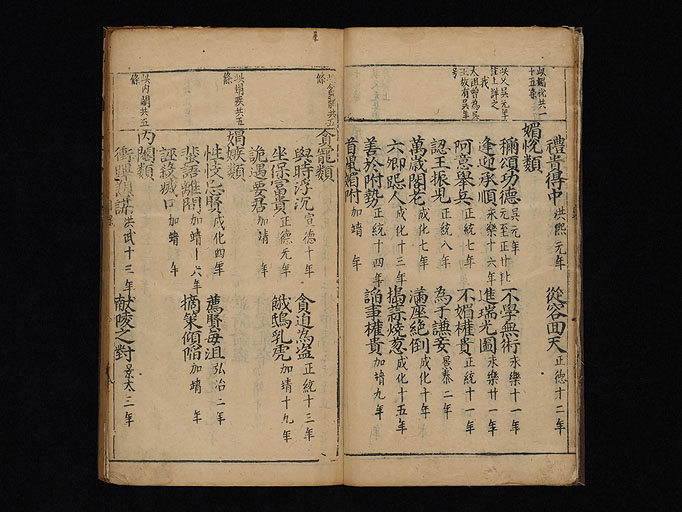 禮貴得中 洪熙元年 從容回天 正德十二年
媚悅類
稱頌功德 吳元年 不學無術 永樂十一年
逢迎承順 永樂十六年 進瑞光圖 永樂廿一年
阿意舉兵 正統七年 不媚權貴 正統十一年
認王振兒 正統八年 為于謙妾 景泰二年
萬歲閣老 成化七年 滿座絕倒 成化十年
六卿跽人 成化十三年 擣蒜燒葱 成化十五年
善於附勢 正統十四年 諂事權貴 加靖九年
首媚附 加靖 年
貪寵類
與時浮沉 宣德十年 貪迫為盜 正統十三年
坐保富貴 正德元年 餓鴟乳虎 加靖十九年
詭遇要君 加靖 年
娼嫉類
性忮忘賢 成化四年 薦賢每沮 弘治二年
蜚語離間 加靖十六年 摘策傾陷 加靖 年
誣緣滅口 加靖 年
內閣類
洪武十三年 献陵之對 景太三年